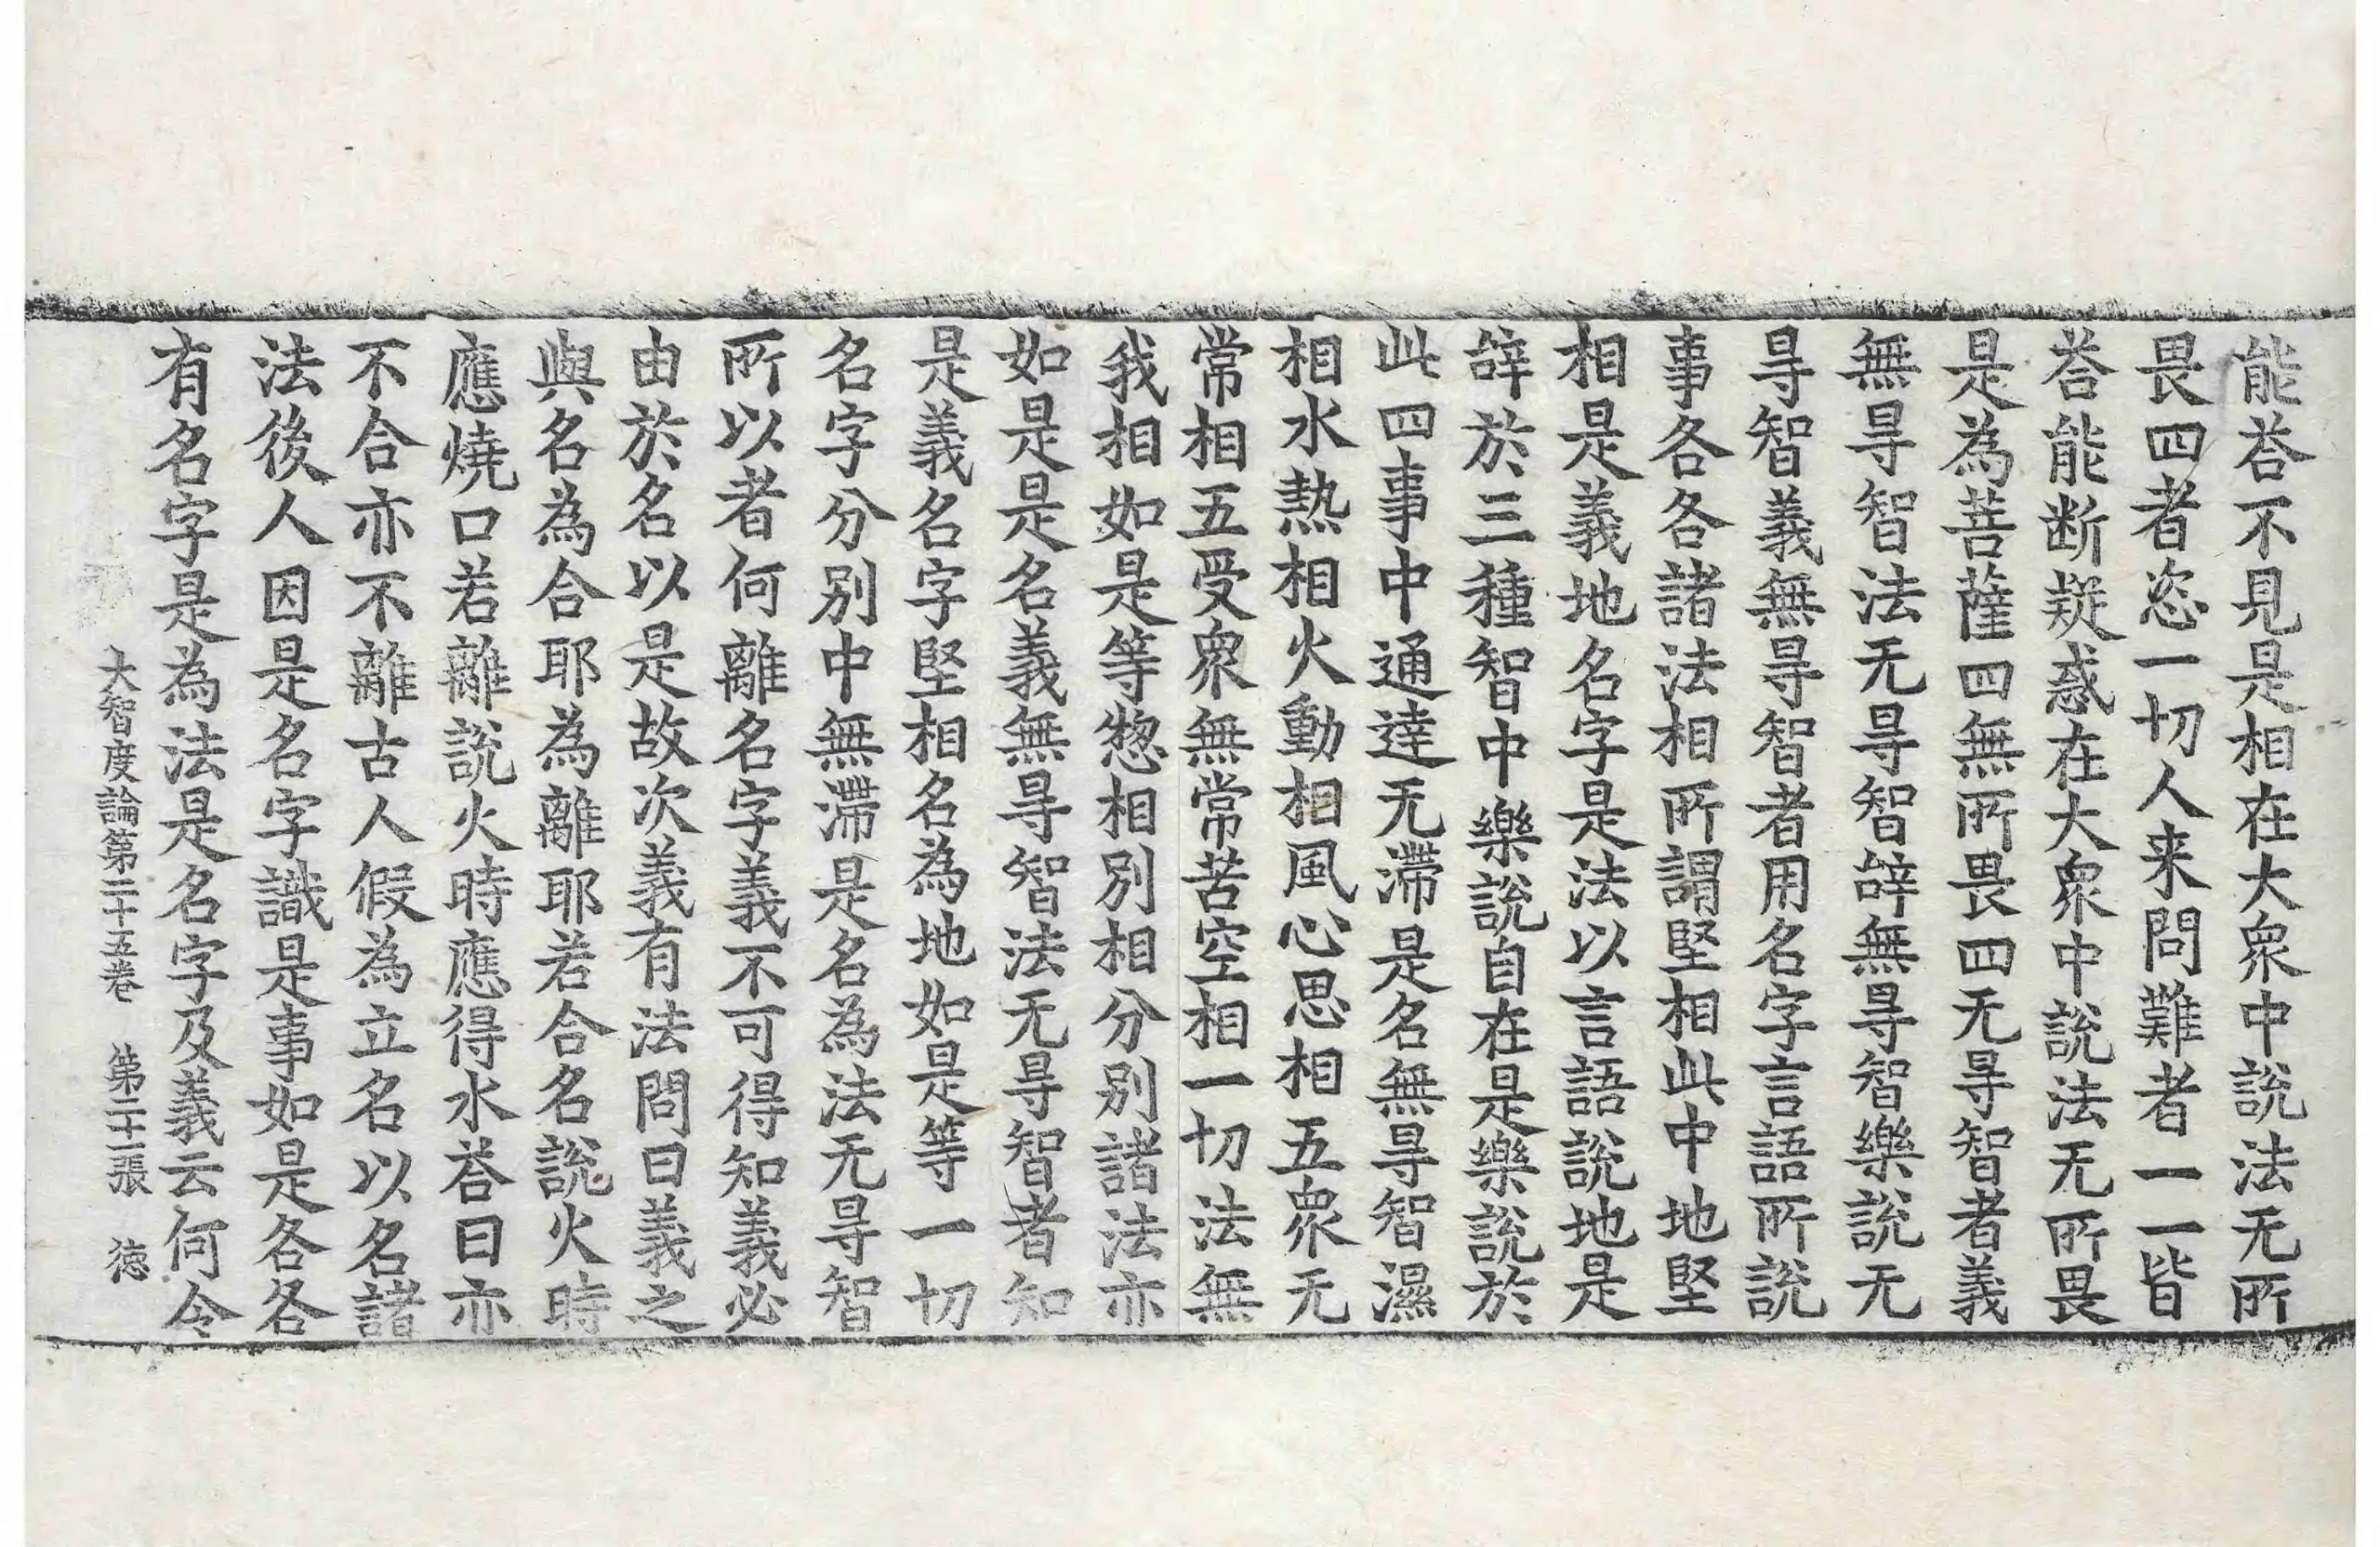 能荅不見是相在大衆中說法无所
畏四者恣一切人来問難者一一皆
荅能断疑惑在大衆中說法无所畏
是為菩薩四無所畏四无㝵智者義
無㝵智法无㝵智辝無㝵智樂說无
㝵智義無㝵智者用名字言語所說
事各各諸法相所謂堅相此中地堅
相是義地名字是法以言語說地是
辝於三種智中樂說自在是樂說於
此四事中通達无滯是名無㝵智濕
相水熱相火動相風心思相五衆无
常相五受衆無常苦空相一切法無
我相如是等惣相別相分別諸法亦
如是是名義無㝵智法无㝵智者知
是義名字堅相名為地如是等一切
名字分別中無滯是名為法无㝵智
所以者何離名字義不可得知義必
由於名以是故次義有法問曰義之
與名為合耶為離耶若合名說火時
應燒口若離說火時應得水荅曰亦
不合亦不離古人假為立名以名諸
法後人因是名字識是事如是各各
有名字是為法是名字及義云何令
大智度論第二十五卷　第二十二張　徳